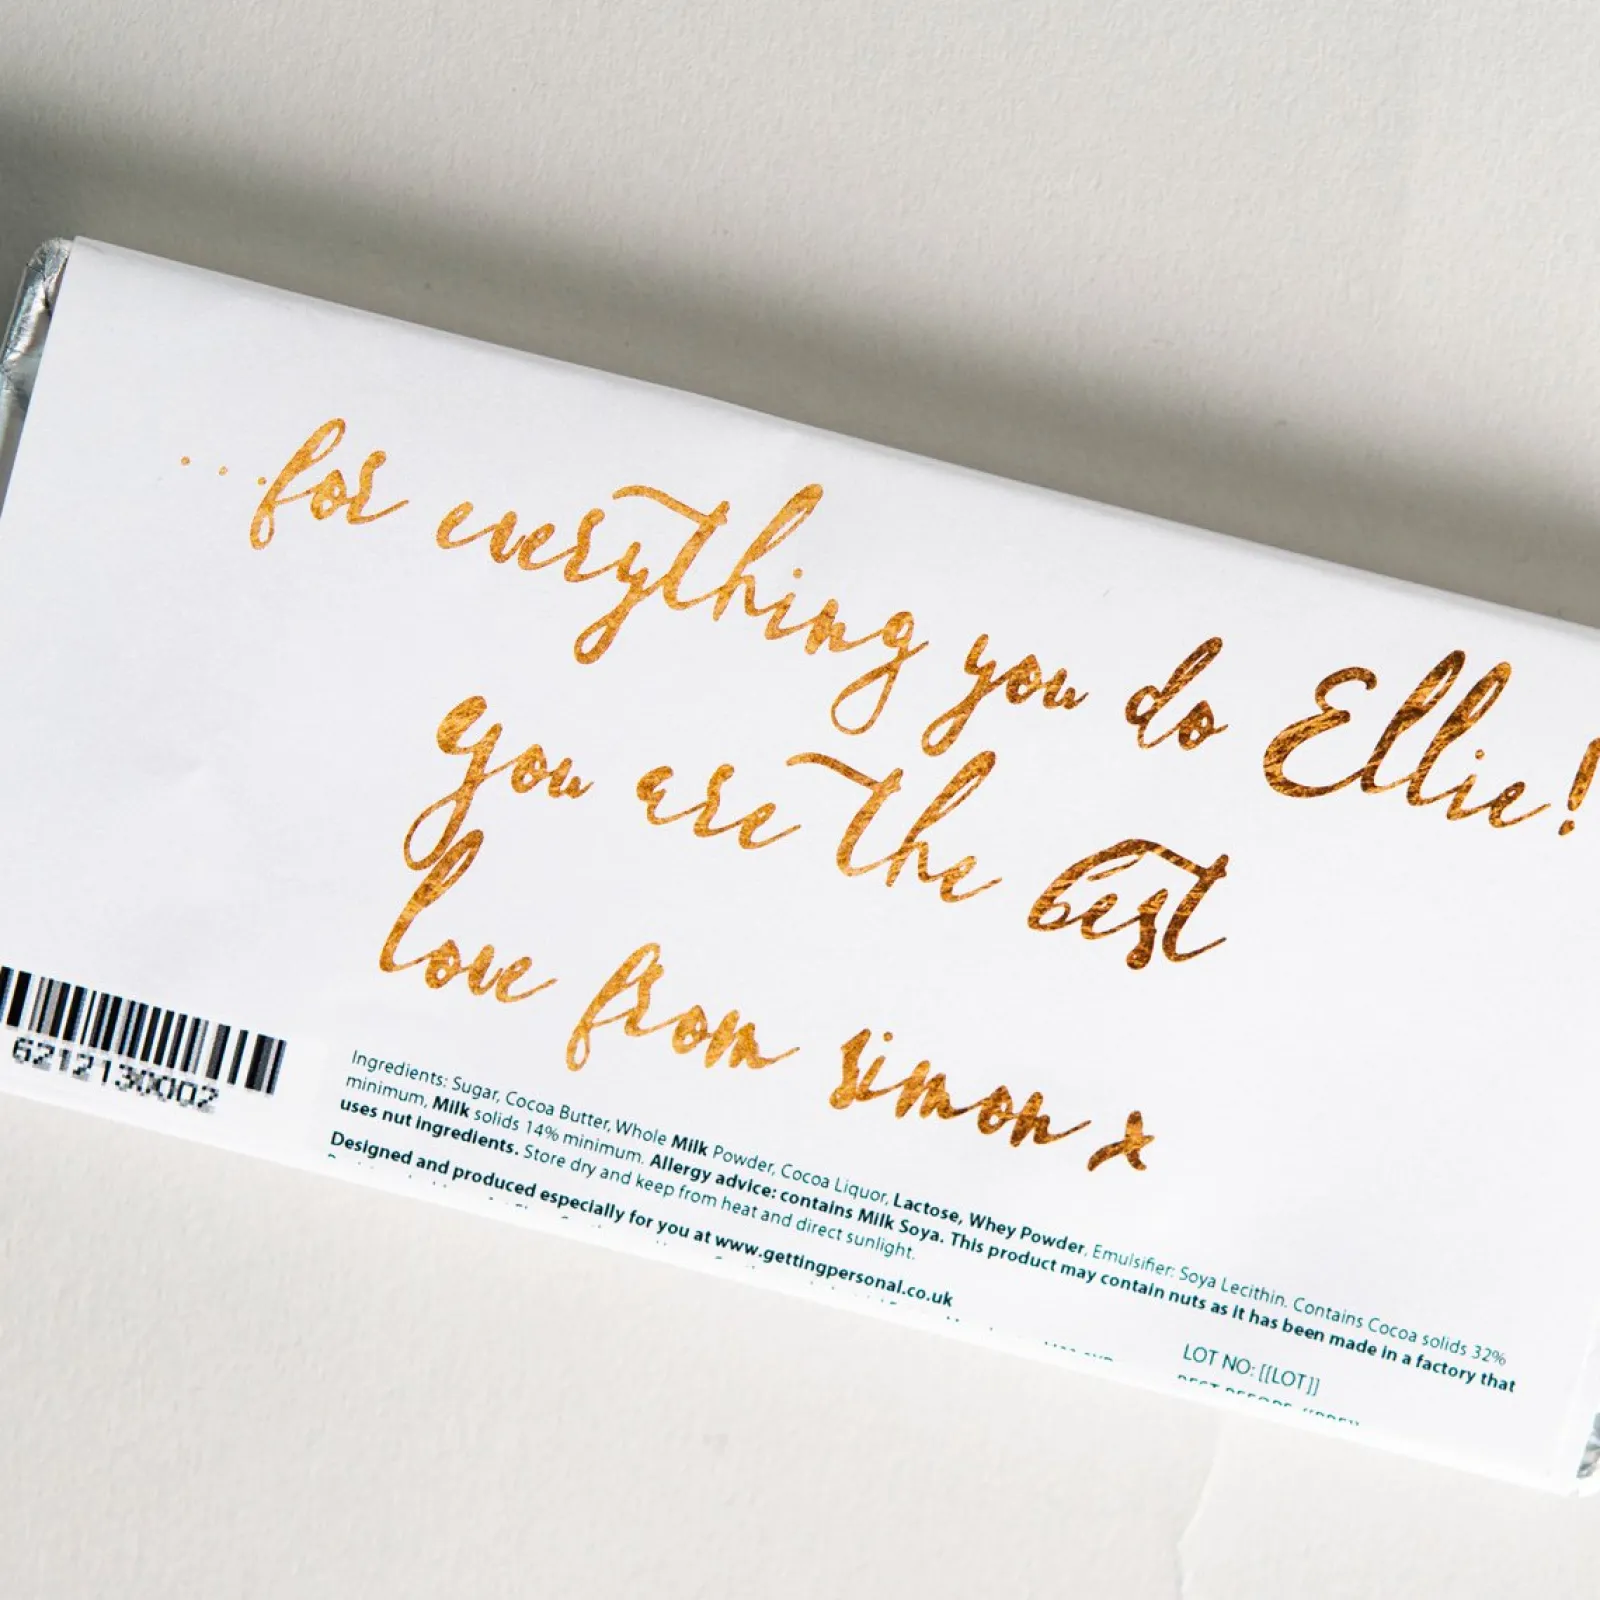 ...for everything you do Ellie!
you are the best
love from simon x
6212130002
Ingredients: Sugar, Cocoa Butter, Whole Milk Powder, Cocoa Liquor, Lactose, Whey Powder, Emulsifier: Soya Lecithin. Contains Cocoa solids 32%
minimum, Milk solids 14% minimum. Allergy advice: contains Milk Soya. This product may contain nuts as it has been made in a factory that
uses nut ingredients. Store dry and keep from heat and direct sunlight.
Designed and produced especially for you at www.gettingpersonal.co.uk
LOT NO: [[LOT]]